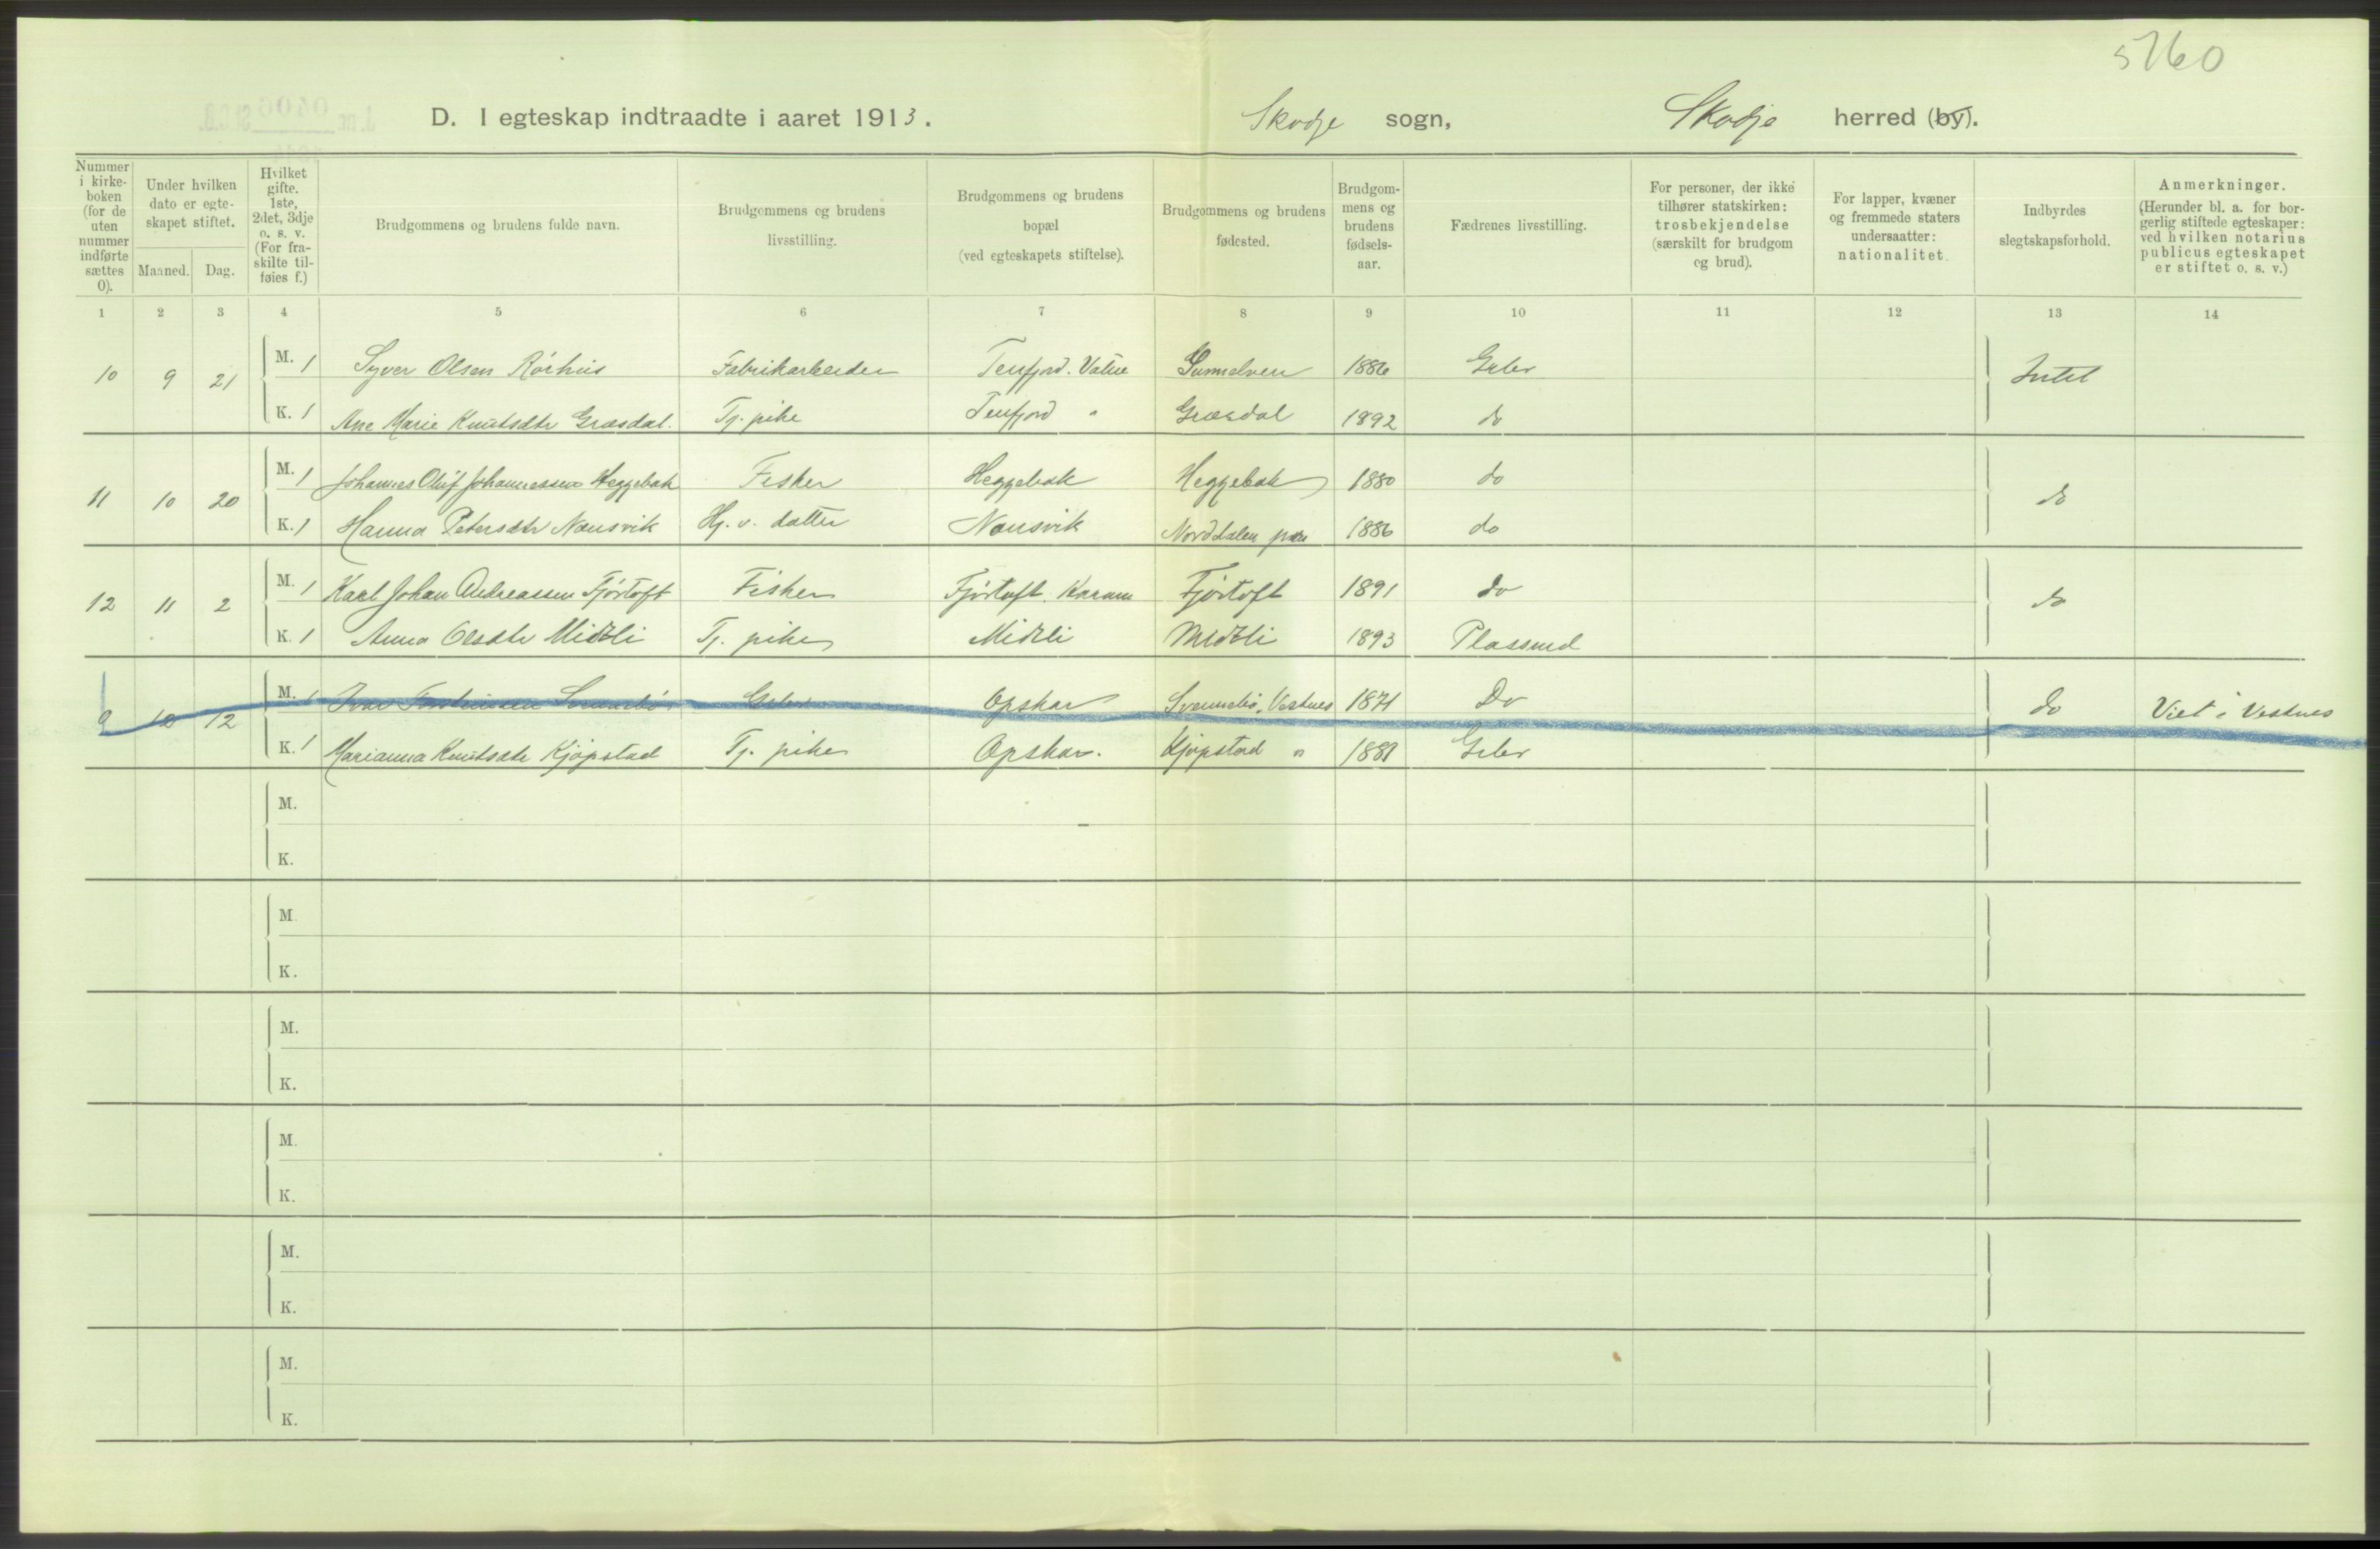 5760
D. I egteskap indtraadte i aaret 1913. Skodje sogn, Skodje herred (by).
Nummer i kirke-boken (for de uten nummer indførte sættes 0).
Under hvilken dato er egte-skapet stiftet.
Maaned. Dag.
Hvilket gifte. 1ste, 2det, 3dje o. s. v. (For fra-skilte til-føies f.)
Brudgommens og brudens fulde navn.
Brudgommens og brudens livsstilling.
Brudgommens og brudens bopæl (ved egteskapets stiftelse).
Brudgommens og brudens fødested.
Brudgom-mens og brudens fødsels-aar.
Fædrenes livsstilling.
For personer, der ikke tilhører statskirken: trosbekjendelse (særskilt for brudgom og brud).
For lapper, kvæner og fremmede staters undersaatter: nationalitet.
Indbyrdes slegtskapsforhold.
Anmerkninger. (Herunder bl. a. for bor-gerlig stiftede egteskaper: ved hvilken notarius publicus egteskapet er stiftet o. s. v.)
1 2 3 4 5 6 7 8 9 10 11 12 13 14
10 9 21 M. 1 Syver Olsen Rørhus Fabrikarbeider Tenfjord. Vatne Sunnelven 1886 Gbr Intet
K. 1 Ane Marie Knutsdtr Græsdal. Tj. pike Tenfjord " Græsdal 1892 do
11 10 20 M. 1 Johannes Oluf Johannessen Heggebak Fisker Heggebak Heggebak 1880 do do
K. 1 Hanna Petersdtr Nansvik Hj. v. datter Nansvik Norddalen 1886 do
12 11 2 M. 1 Karl Johan Andreassen Fjørtoft Fisker Fjørtoft. Haram Fjørtoft 1891 do do
K. 1 Anna Olsdtr Midtli Tj. pike Midtli Midtli 1893 Plassmd
9 10 12 M. 1 Ivar Opskar Svennebø, Vestnes 1871 Do do Viet i Vestnes
K. 1 Marianna Knutsdtr Kjøpstad Tj. pike Opskar. Kjøpstad " 1881 Gbr
M.
K.
M.
K.
M.
K.
M.
K.
M.
K.
M.
K.